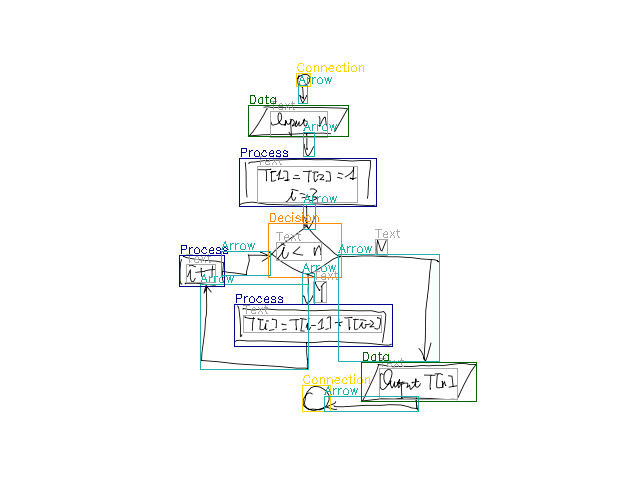 Connection
Arrow
Data
Text
Input n
Arrow
Process
Text
T[1]=T[2]=1
i=3
Arrow
Decision
Text
i < n
Text
N
Arrow
Arrow
Process
Text
i++
Arrow
Arrow
Text
Y
Process
Text
T[i]=T[i-1]+T[i-2]
Data
Text
Output T[n]
Connection
Arrow